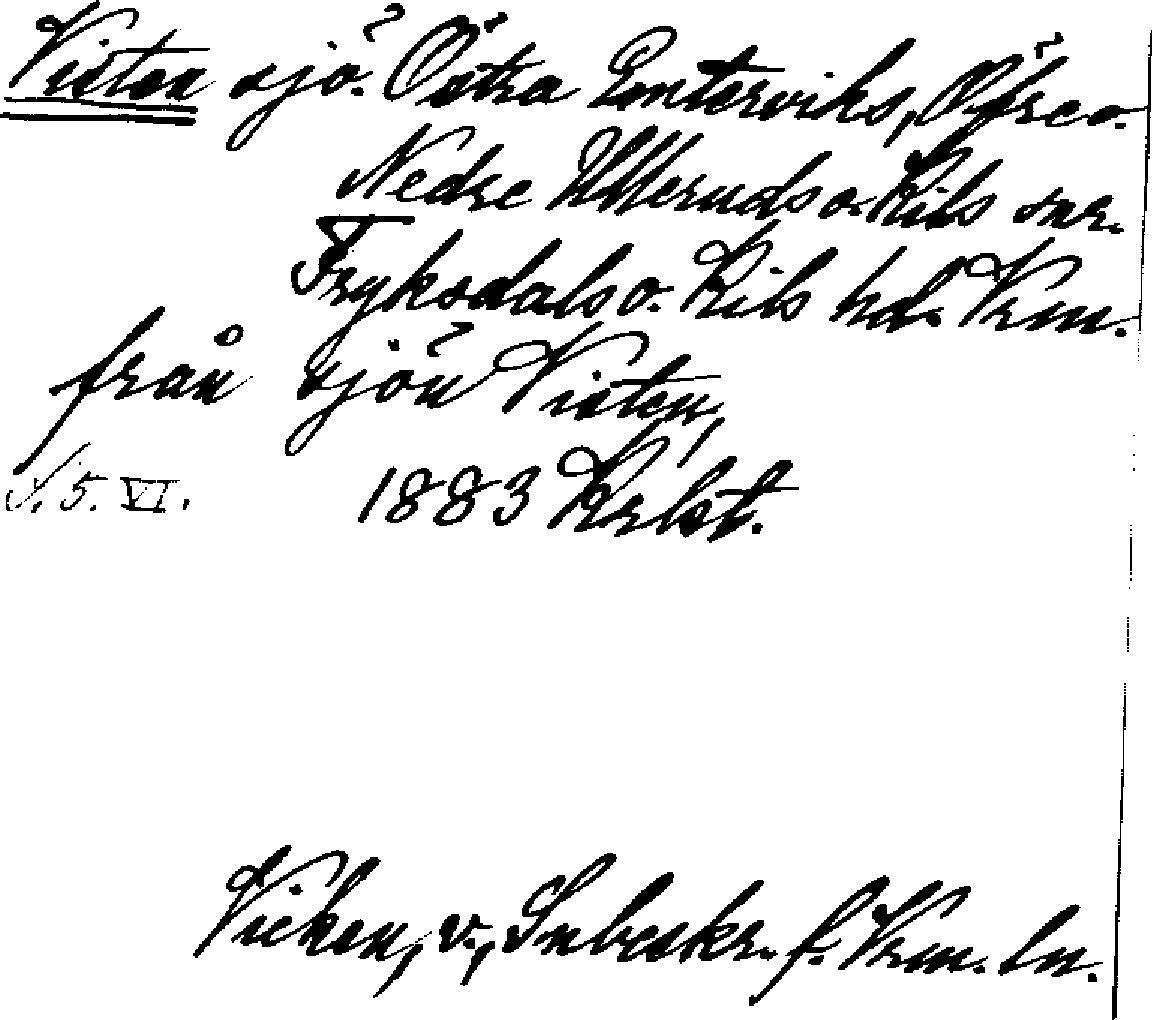 Visten sjö. Östra Emterviks, Öfre o.
Nedre Ulleruds o. Kils snr.
Fryksdals o. Kils hd. Vrm.
från sjön Visten,
S. 5. VI. 1883 Krbst.
Vicken, v., Snbeskr. f. Vrm. ln.